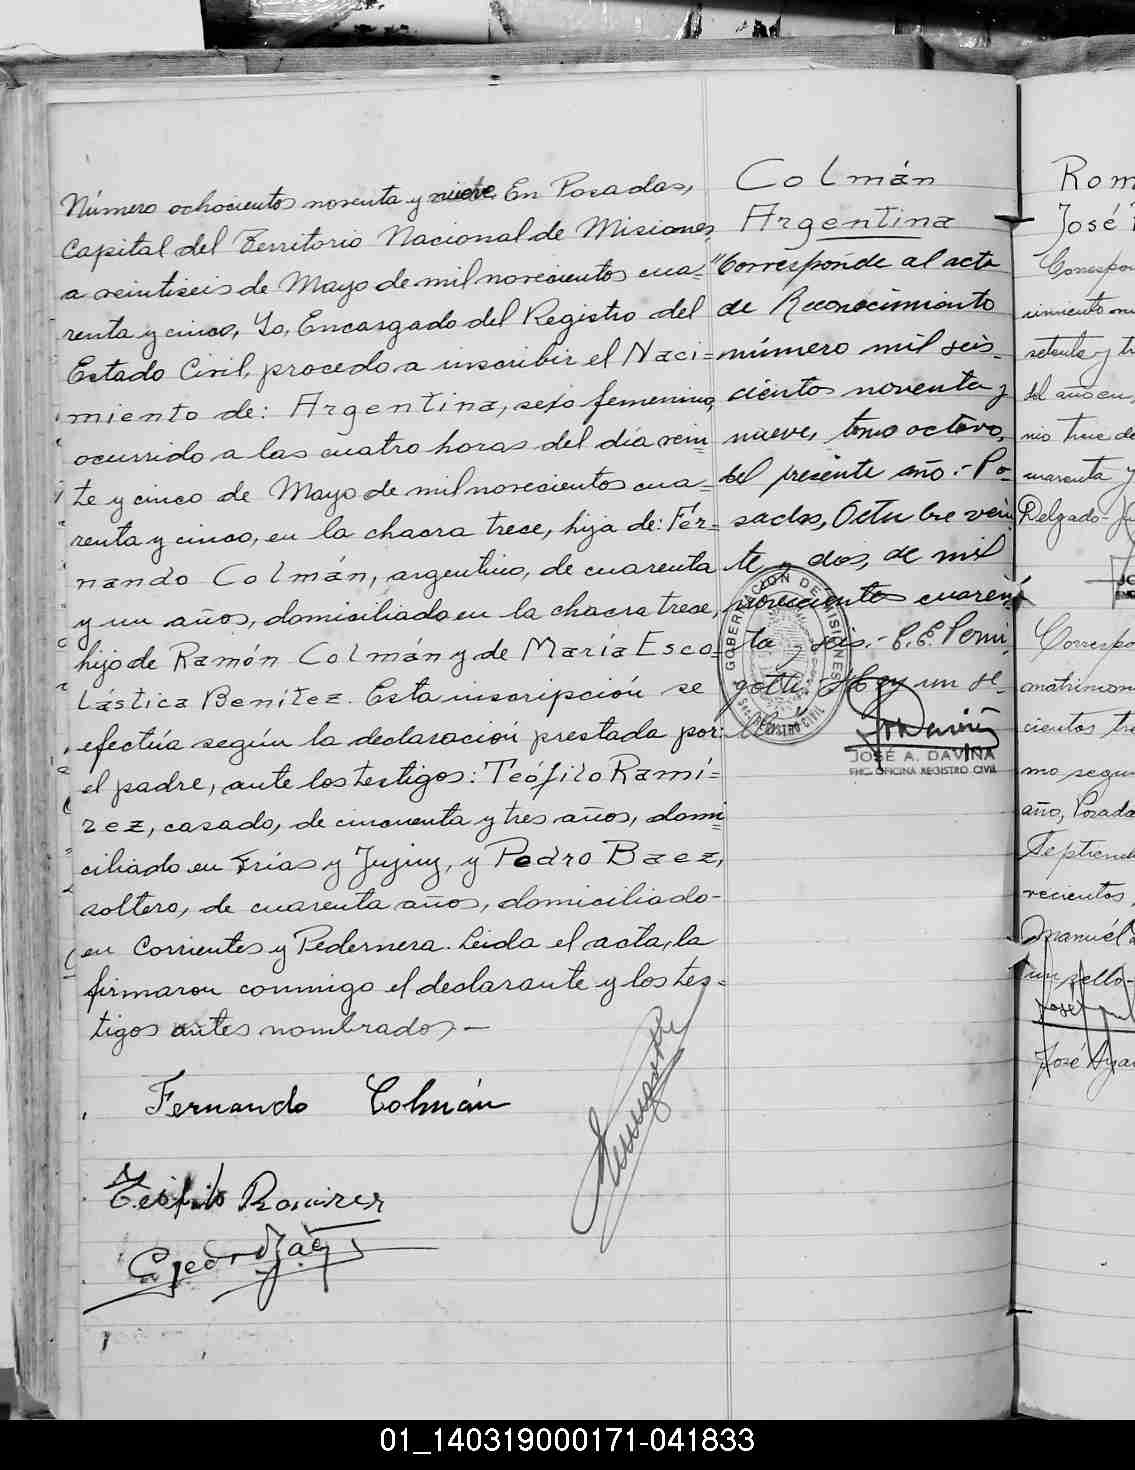 Número ochocientos noventa y nueve. En Posadas,
Capital del Territorio Nacional de Misiones,
a veintiseis de Mayo de mil novecientos cua=
renta y cinco, Yo, Encargado del Registro del
Estado Civil, procedo a inscribir el Naci=
miento de: Argentina, sexo femenino,
ocurrido a las cuatro horas del día vein
te y cinco de Mayo de mil novecientos cua=
renta y cinco, en la chacra trece, hija de: Fer=
nando Colmán, argentino, de cuarenta
y un años, domiciliado en la chacra trece,
hijo de Ramón Colmán y de María Esco=
lástica Benítez. Esta inscripción se
efectúa según la declaración prestada por:
el padre, ante los testigos: Teófilo Ramí=
rez, casado, de cincuenta y tres años, domi
ciliado en Frías y Jujuy, y Pedro Baez,
soltero, de cuarenta años, domiciliado-
en Corrientes y Pedernera. Leida el acta, la
firmaron conmigo el declarante y los tes=
tigos antes nombrados.—
Fernando Colmán
Teófilo Ramirez
Pedro Báez
Colmán
Argentina
"Corresponde al acta
de Reconocimiento
número mil seis-
cientos noventa y
nueve, tomo octavo,
del presente año.- Po-
sadas, Octubre vein
te y dos, de mil
novecientos cuaren
ta y seis.- C.E. Perni
gotti. Hay un se-
llo
GOBERNACION DE MISIONES
REGISTRO CIVIL
JOSÉ A. DAVIÑA
ENC. OFICINA REGISTRO CIVIL
Rom
José
Correspo
cimiento
setenta y tr
del año en
nio trece de
cuarenta y
Delgado-
Correspo
matrimon
cientos tre
mo segu
año, Posada
Septiemb
vecientos,
Manuel
un sello-
José
01_140319000171-041833